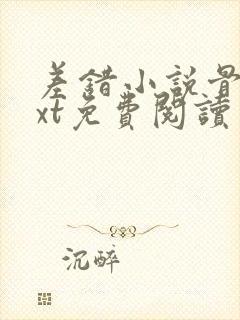 差錯小説
xt免費閱讀
沉醉